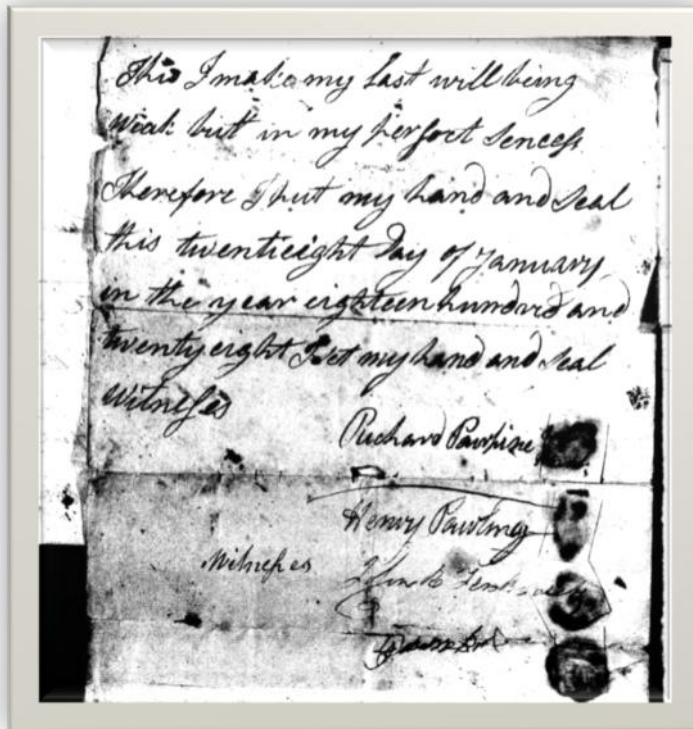 This I make my last will being
weak but in my perfect sencess
Therefore I put my hand and seal
this twentieight Day of January
in the year eighteen hundred and
twenty eight I set my hand and seal
witnesses
Richard
Henry Pawling
Witnesses